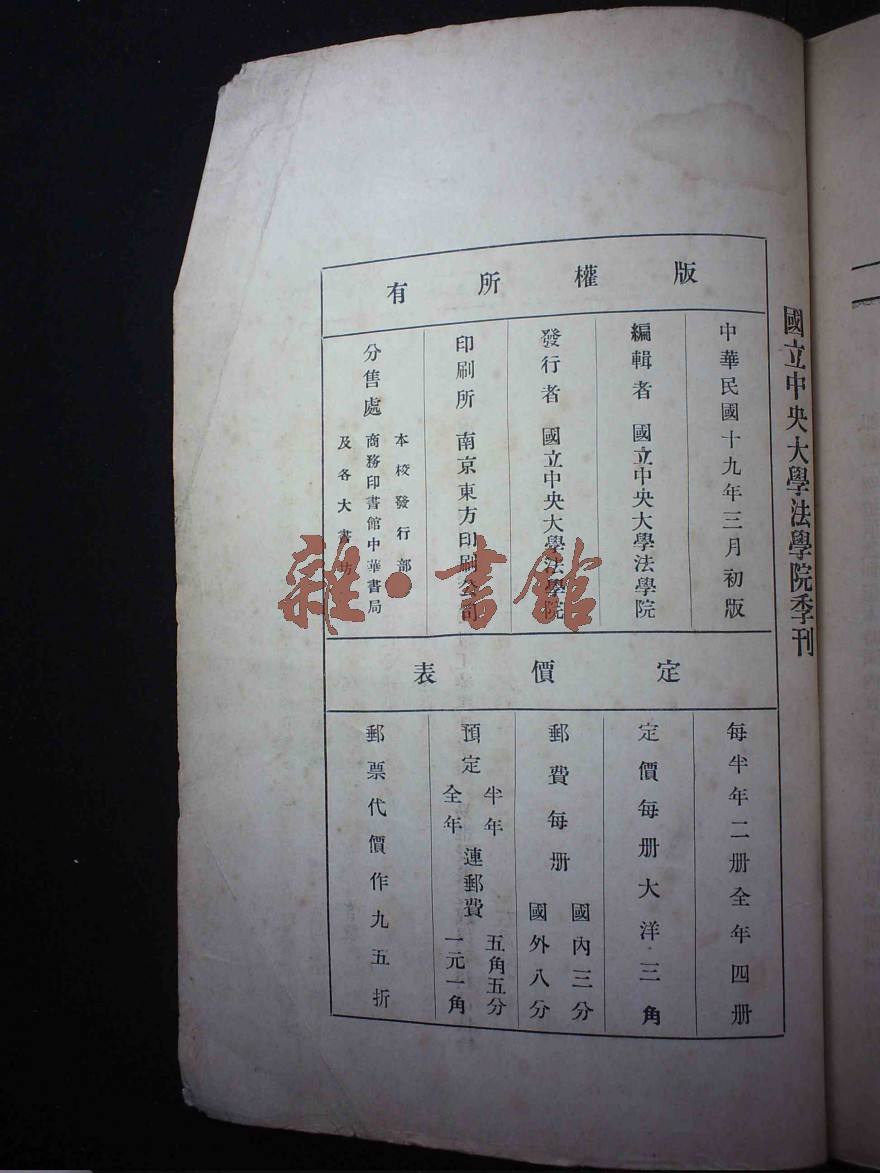 國立中央大學法學院季刊
版權所有
中華民國十九年三月初版
編輯者 國立中央大學法學院
發行者 國立中央大學法學院
印刷所 南京東方印刷公司
分售處
本校發行部
商務印書館中華書局
及各大書坊
定價表
每半年二册全年四册
定價每册大洋三角
郵費每册
國內三分
國外八分
預定
半年
全年
連郵費
五角五分
一元一角
郵票代價作九五折
雜·書館